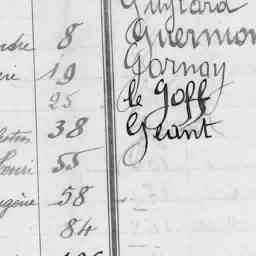 Guyrard
dre 8 Guermon
ri 19 Garnay
25 le Goff
38 Géant
Henri 55
ugène 58
84